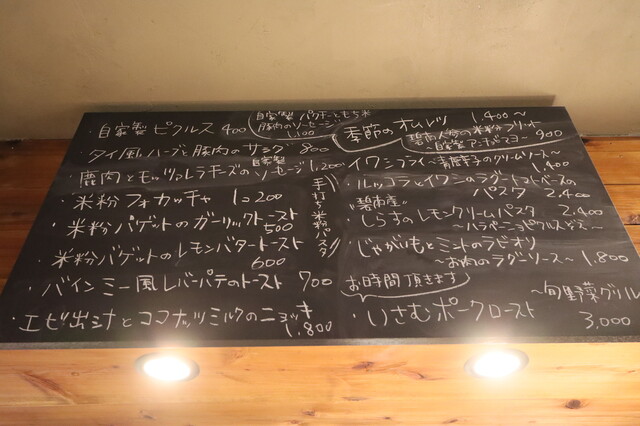 ・自家製 ピクルス 400
自家製 パクチーともち米
豚肉のソーセージ
1,100
タイ風ハーブと豚肉のサラダ 800
・鹿肉とモッツァレラチーズの自家製ソーセージ 1,200
・米粉 フォカッチャ 1コ200
・米粉バゲットのガーリックトースト
500
・米粉バゲットのレモンバタートースト
600
・バインミー風レバーパテのトースト 700
・エビ出汁とココナッツミルクのニョッキ
1,800
手打ち米粉パスタ
季節のオムレツ 1,400〜
碧南人参の米粉フリット
〜自家製アンチョビマヨ〜 900
・イワシフライ〜のクリームソース〜
1,400
・ルッコラとイワシのラグートマトベースの
パスタ 2,400
"碧南産"
・しらすのレモンクリームパスタ 2,400
〜ハラペーニョピクルス
・じゃがいもとミントのラビオリ
〜お肉のラグーソース〜 1,800
お時間頂きます
・いさむポークロースト
〜旬野菜グリル
3,000